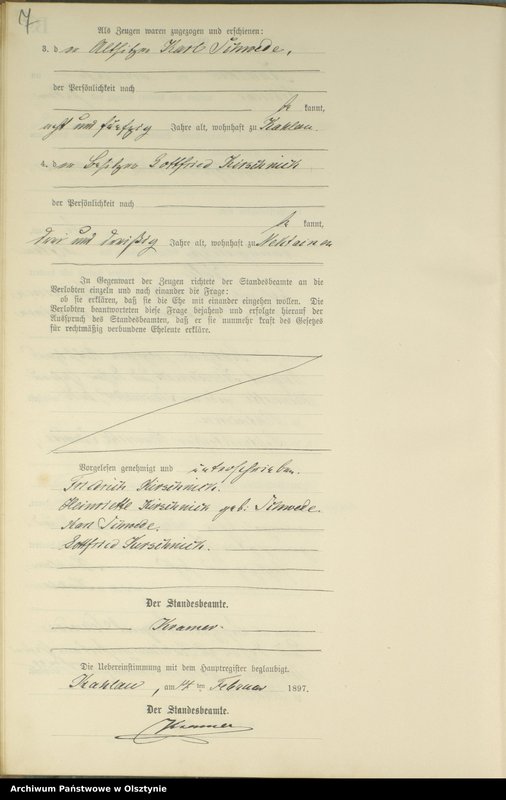 7
Als Zeugen waren zugezogen und erschienen:
3. der Altsitzer Karl Schwede,
der Persönlichkeit nach
be kannt,
acht und fünfzig Jahre alt, wohnhaft zu Kahlau.
4. der Besitzer Gottfried Kirschnick
der Persönlichkeit nach
be kannt,
drei und dreißig Jahre alt, wohnhaft zu
In Gegenwart der Zeugen richtete der Standesbeamte an die
Verlobten einzeln und nach einander die Frage:
ob sie erklären, daß sie die Ehe mit einander eingehen wollen. Die
Verlobten beantworteten diese Frage bejahend und erfolgte hierauf der
Ausspruch des Standesbeamten, daß er sie nunmehr kraft des Gesetzes
für rechtmäßig verbundene Eheleute erkläre.
Vorgelesen, genehmigt und unterschrieben.
Friedrich Kirschnick.
Heinriette Kirschnick geb: Schwede.
Karl Schwede.
Gottfried Kirschnick.
Der Standesbeamte.
Kramer.
Die Uebereinstimmung mit dem Hauptregister beglaubigt.
Kahlau, am 14 ten Februar 1897.
Der Standesbeamte.
Kramer
Archiwum Państwowe w Olsztynie